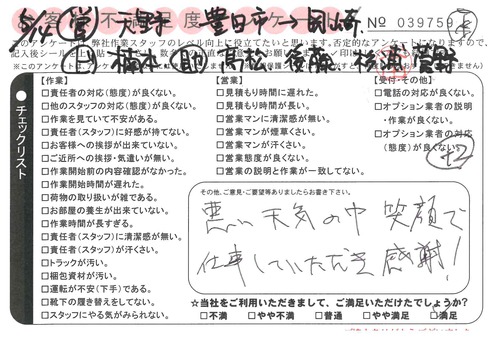 5/4 営 天野 豊田市→岡崎 No 039759
上 楠本 郎 髙松 後藤
チェックリスト
【作業】
□責任者の対応(態度)が良くない。
□他のスタッフの対応(態度)が良くない。
□作業を見ていて不安がある。
□責任者(スタッフ)に好感が持てない。
□お客様への挨拶が出来ていない。
□ご近所への挨拶・気遣いが無い。
□作業開始前の内容確認がなかった。
□作業開始時間が遅れた。
□荷物の取り扱いが雑である。
□お部屋の養生が出来ていない。
□作業時間が長すぎる。
□責任者(スタッフ)に清潔感が無い。
□責任者(スタッフ)が汗くさい。
□トラックが汚い。
□梱包資材が汚い。
□運転が不安(下手)である。
□靴下の履き替えをしてない。
□スタッフにやる気がみられない。
【営業】
□見積もり時間に遅れた。
□見積もり時間が長い。
□営業マンに清潔感が無い。
□営業マンが煙草くさい。
□営業マンが汗くさい。
□営業態度が良くない。
□営業の説明と作業が一致してない。
【受付・その他】
□電話の対応が良くない。
□オプション業者の説明
・作業が良くない。
□オプション業者の対応
(態度)が良くない。
+2
その他、ご意見・ご要望等ありましたらお書き下さい。
悪い天気の中 笑顔で
仕事していただき感謝!
☆当社をご利用いただきまして、ご満足いただけたでしょうか?
□不満 □やや不満 □普通 □やや満足 □満足